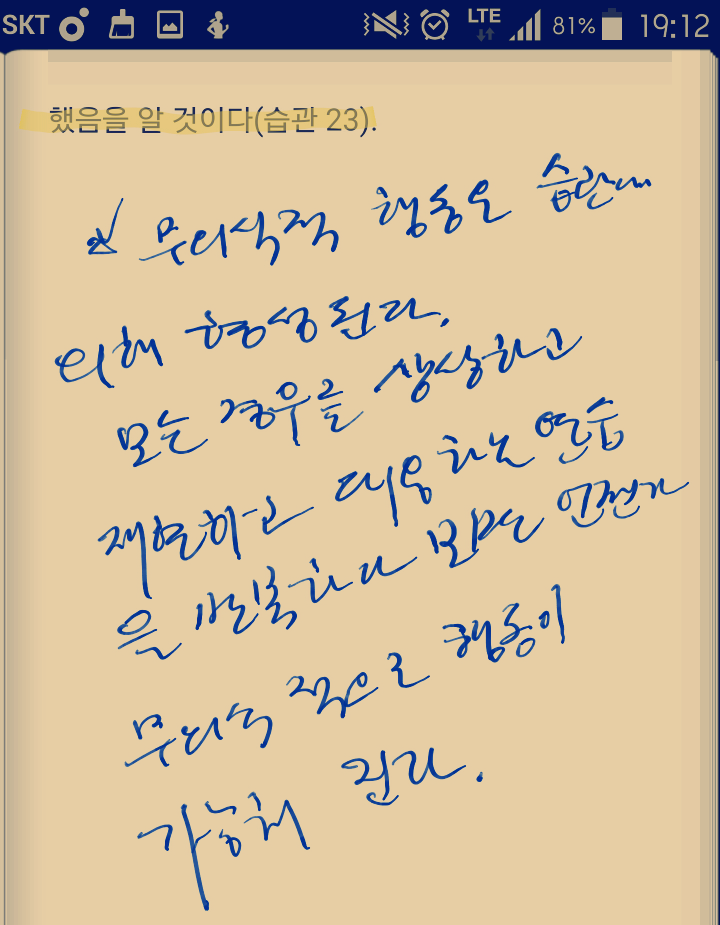 SKT LTE 81% 19:12
했음을 알 것이다(습관 23).
무의식적 행동은 습관에
의해 형성된다.
모든 경우를 상상하고
재현하고 대응하는 연습
을 반복하다 보면 언젠가
무의식적으로 행동이
가능해 진다.